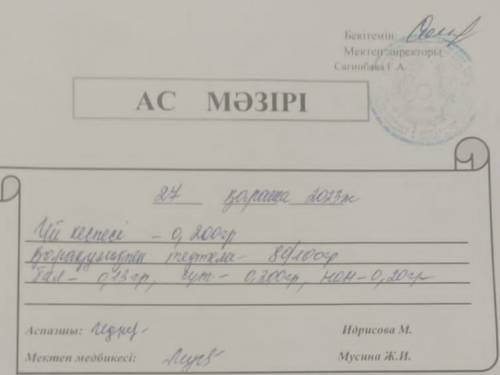 Бекітемін:
Мектеп директоры
Сагинбаева Г.А.
АС МӘЗІРІ
27 қараша 2023ж
Үй кеспесі – 0,200гр
тефтели – 80/100гр
Бал – 0,13гр, сүт – 0.200гр, нон – 0,20гр
Аспазшы: Идрисова М.
Мектеп медбикесі: Мусина Ж.И.